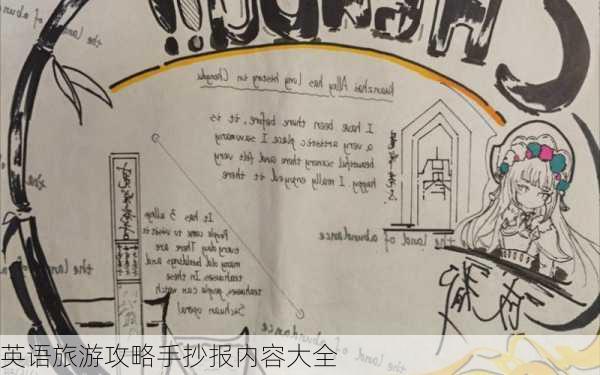 CHENGDU!!
the land of abun
Kuanzhai Alley has long history in Chengdu
I have been there before, it is
a very artistic place I saw many
beautiful scenery there and felt very
happy. I really enjoyed it there
the land of abundance
It has 3 alleys
People come to visit it
every day There are
many old buildings and
teahouses. In these
teahouses, people can watch
Sichuan opera
the land of
成都
the land of abundance
英语旅游攻略手抄报内容大全